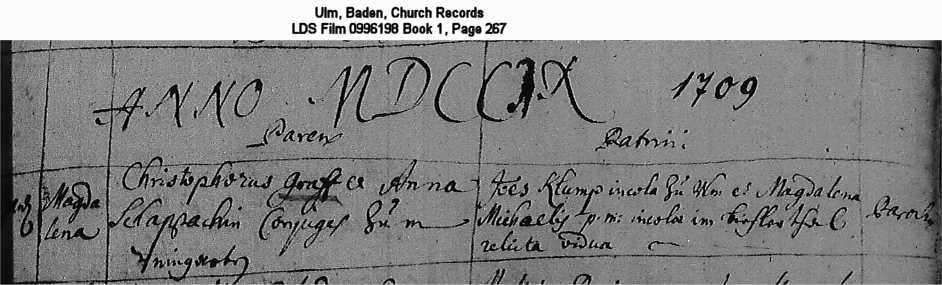 Ulm, Baden, Church Records
LDS Film 0996198 Book 1, Page 267
ANNO MDCCIX 1709
Paren Patrini:
Magda
lena
Christophorus Graff et Anna
Schappachin Conjuges zů
Joes Klump incola zů Ulm et Magdalena
Michaelis p.m: incolæ im thal
relicta vidua